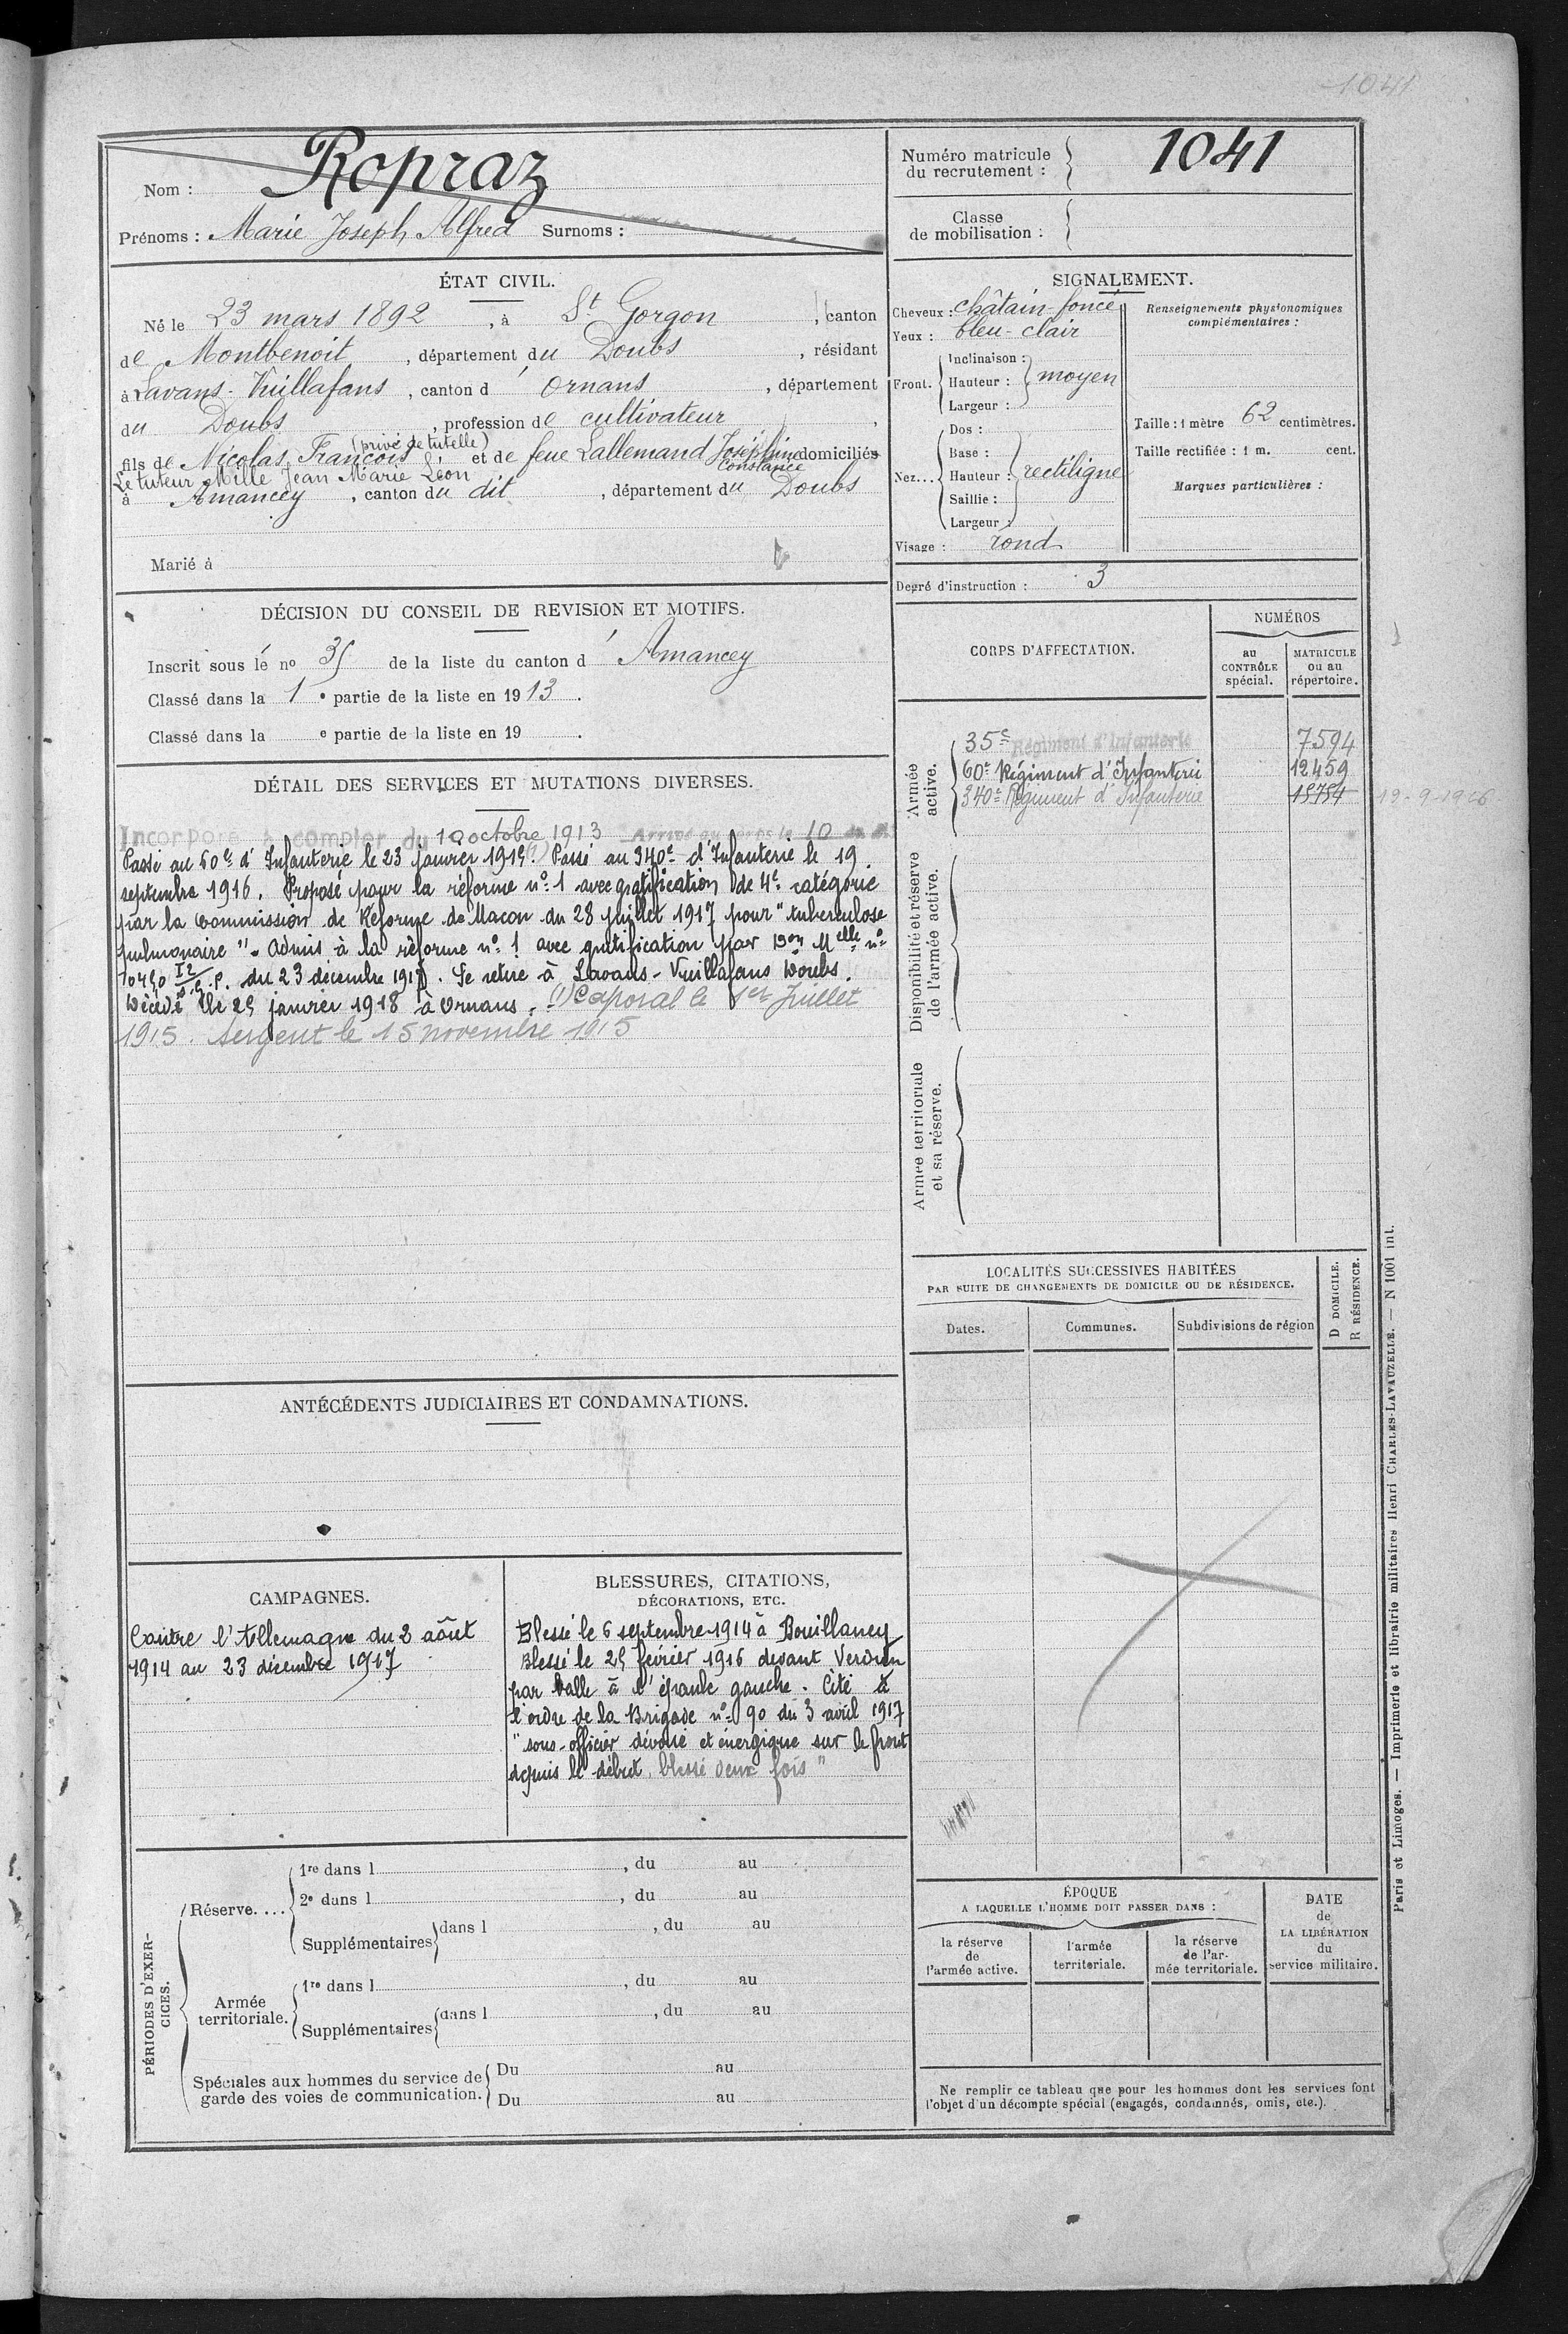 1041
Nom : Ropraz
Prénoms : Marie Joseph Alfred Surnoms :
Numéro matricule du recrutement : 1041
Classe de mobilisation :
ÉTAT CIVIL.
Né le 23 mars 1892, à St Gorgon, canton
de Montbenoit, département du Doubs, résidant
à Lavans-Vuillafans, canton d'Ornans, département
du Doubs, profession de cultivateur,
(privé de tutelle)
fils de Nicolas, François et de feue Lallemand Joséphine Constance domiciliés
Le tuteur Mille Jean Marie Léon
à Amancey, canton du dit, département du Doubs
Marié à
SIGNALEMENT.
Cheveux : châtain foncé
Yeux : bleu-clair
Front. Inclinaison : Hauteur : Largeur : moyen
Nez... Dos : Base : Hauteur : Saillie : Largeur : rectiligne
Visage : rond
Renseignements physionomiques complémentaires :
Taille : 1 mètre 62 centimètres.
Taille rectifiée : 1 m. cent.
Marques particulières :
Degré d'instruction : 3
DÉCISION DU CONSEIL DE REVISION ET MOTIFS.
Inscrit sous le no 35 de la liste du canton d'Amancey
Classé dans la 1e partie de la liste en 1913.
Classé dans la e partie de la liste en 19 .
CORPS D'AFFECTATION.
NUMÉROS
au CONTRÔLE spécial.
MATRICULE ou au répertoire.
Armée active.
35e Régiment d'Infanterie 7594
60e Régiment d'Infanterie 12459
340e Régiment d'Infanterie 15754 19-9-1916
Disponibilité et réserve de l'armée active.
Armée territoriale et sa réserve.
DÉTAIL DES SERVICES ET MUTATIONS DIVERSES.
Incorporé à compter du 10 octobre 1913 Arrivé au corps le 10 du dit
Passé au 60e d'Infanterie le 23 janvier 1915. (1) Passé au 340e d'Infanterie le 19
septembre 1916. Proposé pour la réforme no 1 avec gratification de 4e catégorie
par la Commission de Réforme de Macon du 28 juillet 1917 pour "tuberculose
pulmonaire". Admis à la réforme no 1 avec gratification par Don Melle no
du 23 décembre 1917. Se retire à Lavans-Vuillafans Doubs.
Décédé le 25 janvier 1918 à Ornans. (1) Caporal le 1er Juillet
1915. Sergent le 15 novembre 1915
LOCALITÉS SUCCESSIVES HABITÉES
PAR SUITE DE CHANGEMENTS DE DOMICILE OU DE RÉSIDENCE.
Dates.
Communes.
Subdivisions de région
D DOMICILE.
R RÉSIDENCE.
ANTÉCÉDENTS JUDICIAIRES ET CONDAMNATIONS.
CAMPAGNES.
Contre l'Allemagne du 2 août
1914 au 23 décembre 1917
BLESSURES, CITATIONS,
DÉCORATIONS, ETC.
Blessé le 6 septembre 1914 à Bouillancy
Blessé le 25 février 1916 devant Verdun
par balle à l'épaule gauche. Cité à
l'ordre de la Brigade no 90 du 3 avril 1917
"sous-officier dévoué et énergique sur le front
depuis le début, blessé deux fois"
PÉRIODES D'EXERCICES.
Réserve....
1re dans l , du au
2e dans l , du au
Supplémentaires dans l , du au
Armée territoriale.
1re dans l , du au
Supplémentaires dans l , du au
Spéciales aux hommes du service de garde des voies de communication.
Du au
Du au
ÉPOQUE
A LAQUELLE L'HOMME DOIT PASSER DANS :
la réserve de l'armée active.
l'armée territoriale.
la réserve de l'armée territoriale.
DATE de LA LIBÉRATION du service militaire.
Ne remplir ce tableau que pour les hommes dont les services font
l'objet d'un décompte spécial (engagés, condamnés, omis, etc.).
Paris et Limoges. — Imprimerie et librairie militaires Henri CHARLES-LAVAUZELLE. — N 1001 int.